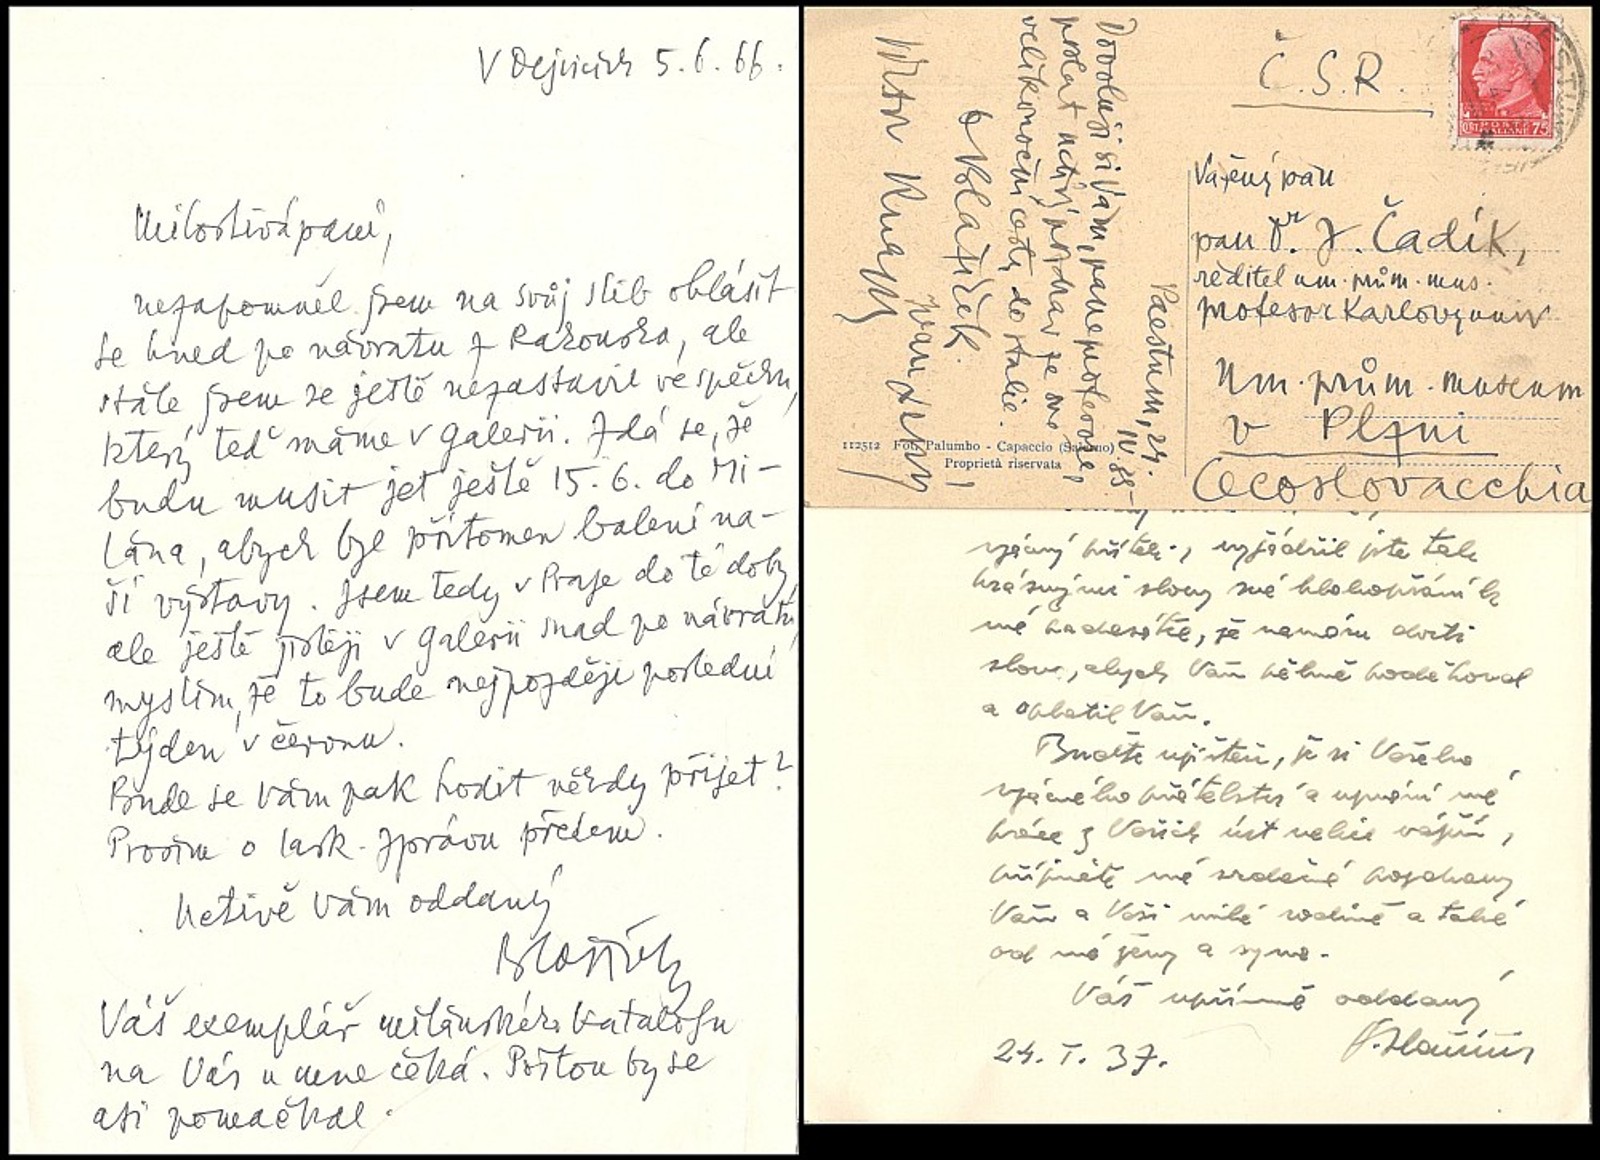 V Dejvicích 5.6.66.
Milostivá paní,
nezapomněl jsem na svůj slib ohlásit
se hned po návratu z Rakouska, ale
stále jsem se ještě nezastavil ve spěchu,
který teď máme v Galerii. Zdá se, že
budu musit jet ještě 15.6. do Mi-
lána, abych byl přítomen balení na-
ší výstavy. Jsem tedy v Praze do té doby,
ale ještě jistěji v Galerii snad po návratu,
myslím, že to bude nejpozději poslední
týden v červnu.
Bude se Vám pak hodit někdy přijet?
Prosím o lask. zprávu předem.
Uctivě Vám oddaný
Blažíček
Váš exemplář milánského katalogu
na Vás u mne čeká. Poštou by se
asi pomačkal.
Č.S.R.
POSTE ITALIANE 75
Vážený pan
pan Dr. J. Čadík,
ředitel um. prům. mus.
profesor Karlovy univ
Um. prům. museum
v Plzni
Cecoslovacchia
Paestum, 24.
IV 35
Dovoluji si Vám, pane profesore,
poslat uctivý pozdrav ze své
velikonoční cesty do Italie.
Blažíček.
112512 Fot. Palumbo - Capaccio (Salerno)
Proprietà riservata
vzácný příteli, vyjádřil jste tak
krásnými slovy své blahopřání k
mé padesátce, že nemám dosti
slov, abych Vám pěkně poděkoval
a oplatil Vám.
Buďte ujištěn, že si Vašeho
vzácného přátelství a uznání mé
práce z Vašich úst velice vážím,
přijměte mé srdečné pozdravy
Vám a Vaší milé rodině a také
od mé ženy a syna.
Váš upřímně oddaný
24. I. 37.